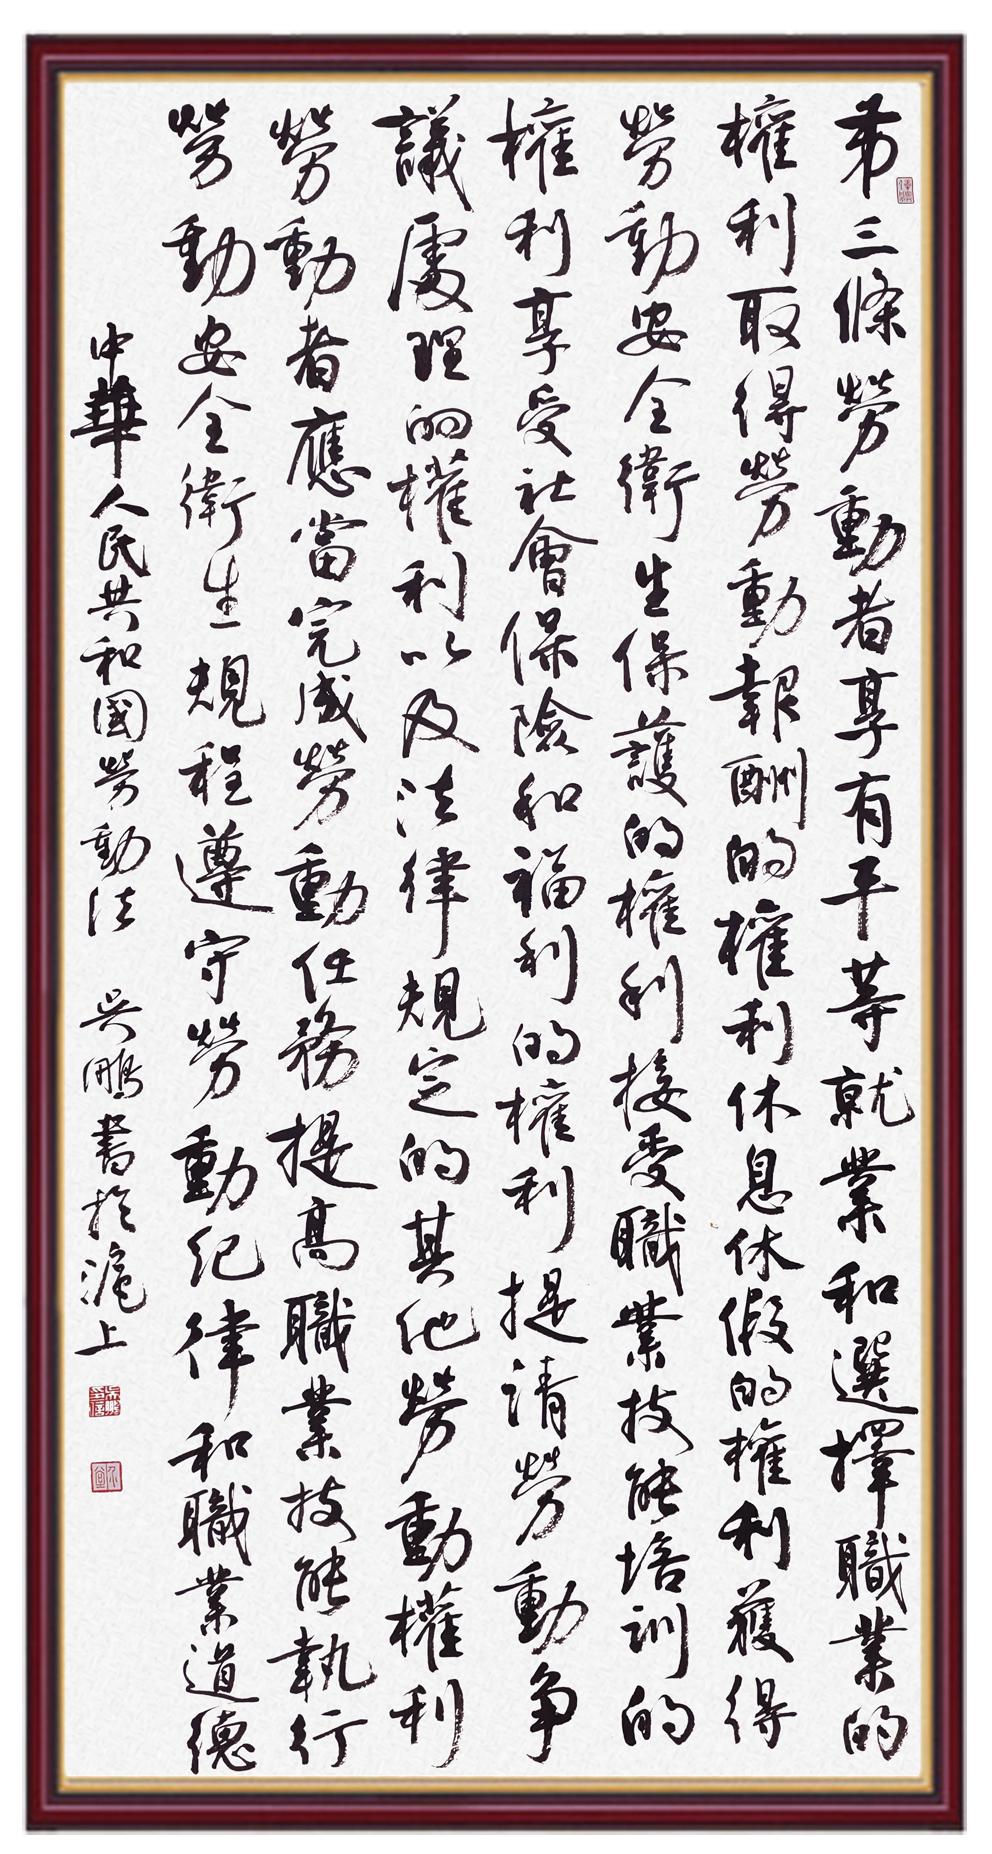 第三條勞動者享有平等就業和選擇職業的
權利取得勞動報酬的權利休息休假的權利獲得
勞動安全衛生保護的權利接受職業技能培訓的
權利享受社會保險和福利的權利提請勞動争
議處理的權利以及法律規定的其他勞動權利
勞動者應當完成勞動任務提高職業技能執行
勞動安全衛生規程遵守勞動紀律和職業道德
中華人民共和國勞動法 吴鵬書於滬上